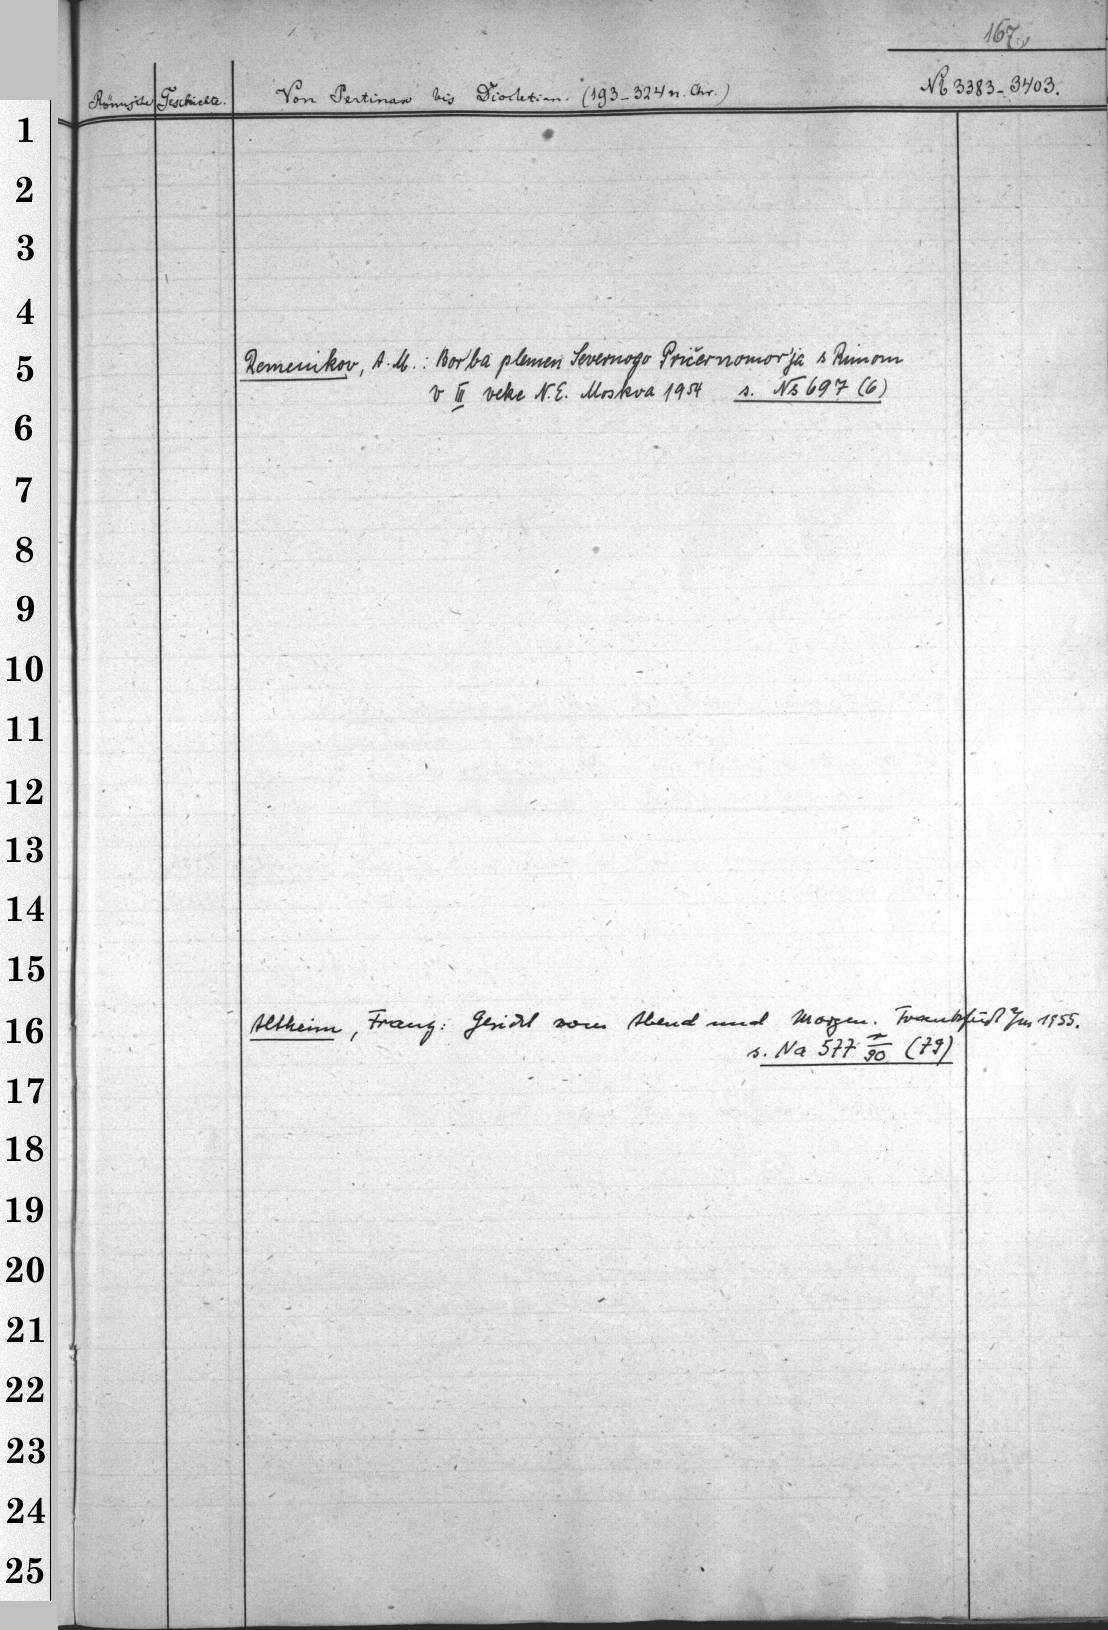 167v
Römische Geschichte. Von Pertinax bis Diocletian. (193-324 n. Chr.) Nb 3383-3403.
1
2
3
4
5
Remenikov, A. M.: Bor'ba plemen Severnogo Pričernomor'ja s Rimom
v III veke N.E. Moskva 1954 s. Ns 697 (6)
6
7
8
9
10
11
12
13
14
15
16
Altheim, Franz: Gesicht vom Abend und Morgen. Frankfurt 1955.
s. Na 577 90 (79)
17
18
19
20
21
22
23
24
25